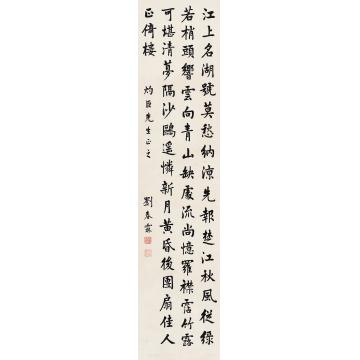 江上名湖號莫愁納涼先報楚江秋風從綠
若梢頭響雲向青山缺處流尚憶羅襟霑竹露
可堪清夢隔沙鷗遙憐新月黃昏後團扇佳人
正倚樓
灼臣先生正之
劉春霖